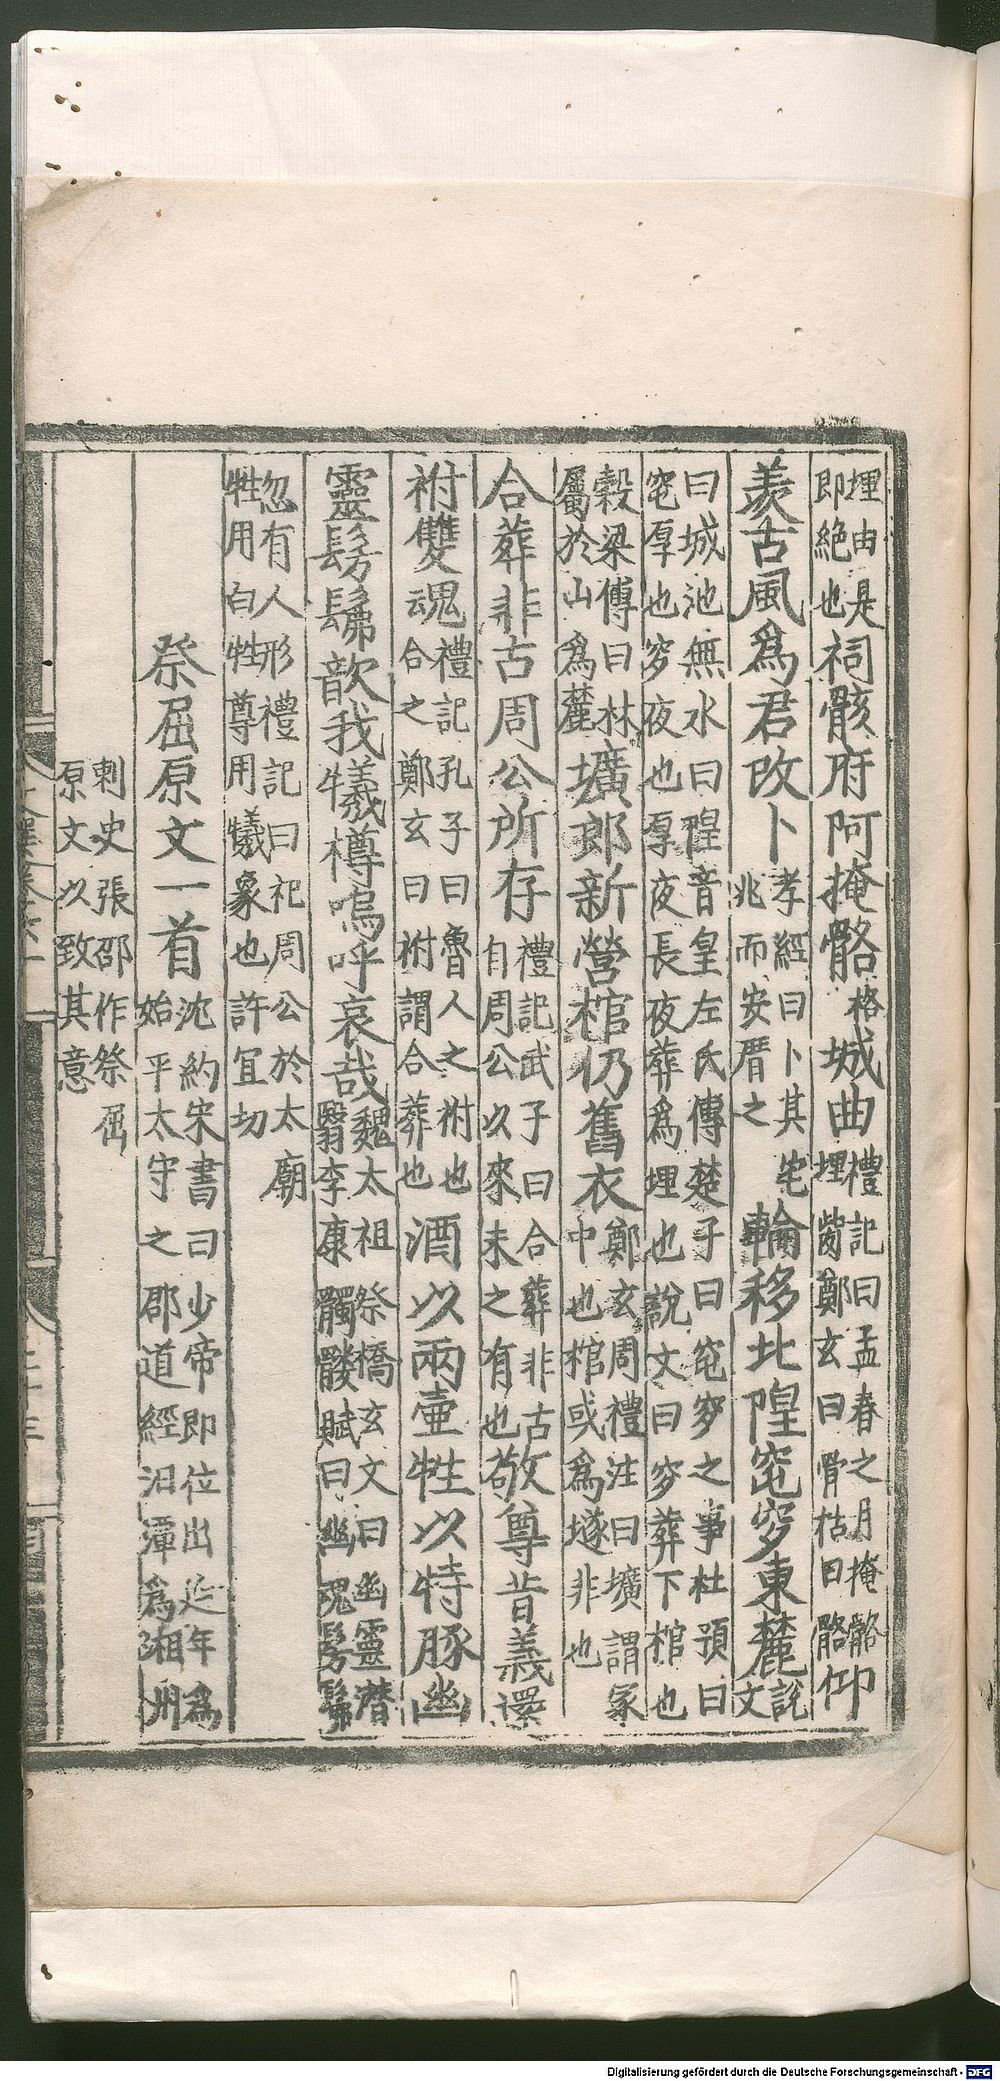 埋由是即絶也祠骸府阿掩骼格城曲禮記曰孟春之月掩骼埋胔鄭玄曰骨枯曰骼仰
羨古風爲君改卜孝經曰卜其宅兆而安厝之輪移北隍窀穸東麓說文
曰城池無水曰隍音皇左氏傳楚子曰窀穸之事杜預曰窀厚也穸夜也厚夜長夜葬爲埋也說文曰穸葬下棺也
穀梁傳曰林屬於山爲麓壙郎新營棺仍舊衣鄭玄周禮注曰壙謂冢中也棺或爲墜非也
合葬非古周公所存禮記武子曰合葬非古自周公以來未之有也敬尊昔義還
祔雙魂禮記孔子曰魯人之祔也合之鄭玄曰祔謂合葬也酒以兩壺牲以特豚幽
靈髣髴歆我犧樽嗚呼哀哉魏太祖祭橋玄文曰幽靈潜翳李康髑髏賦曰幽魂髣髴
忽有人形禮記曰祀周公於太廟牲用白牡尊用犧象也許宜切
祭屈原文一首沈約宋書曰少帝即位出延年爲始平太守之郡道經汨潭爲湘州
刺史張邵作祭屈原文以致其意
Digitalisierung gefördert durch die Deutsche Forschungsgemeinschaft - DFG